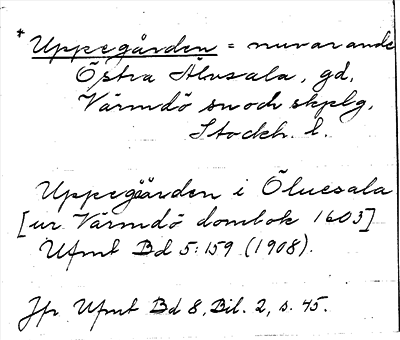 * Uppegården = nuvarande
Östra Älvsala, gd,
Värmdö sn och skplg,
Stockh. l.
Uppegården i Ölvesala
[ur Värmdö dombok 1603]
Ufmt Bd 5:159 (1908).
Jfr Ufmt Bd 8, Bil. 2, s. 45.